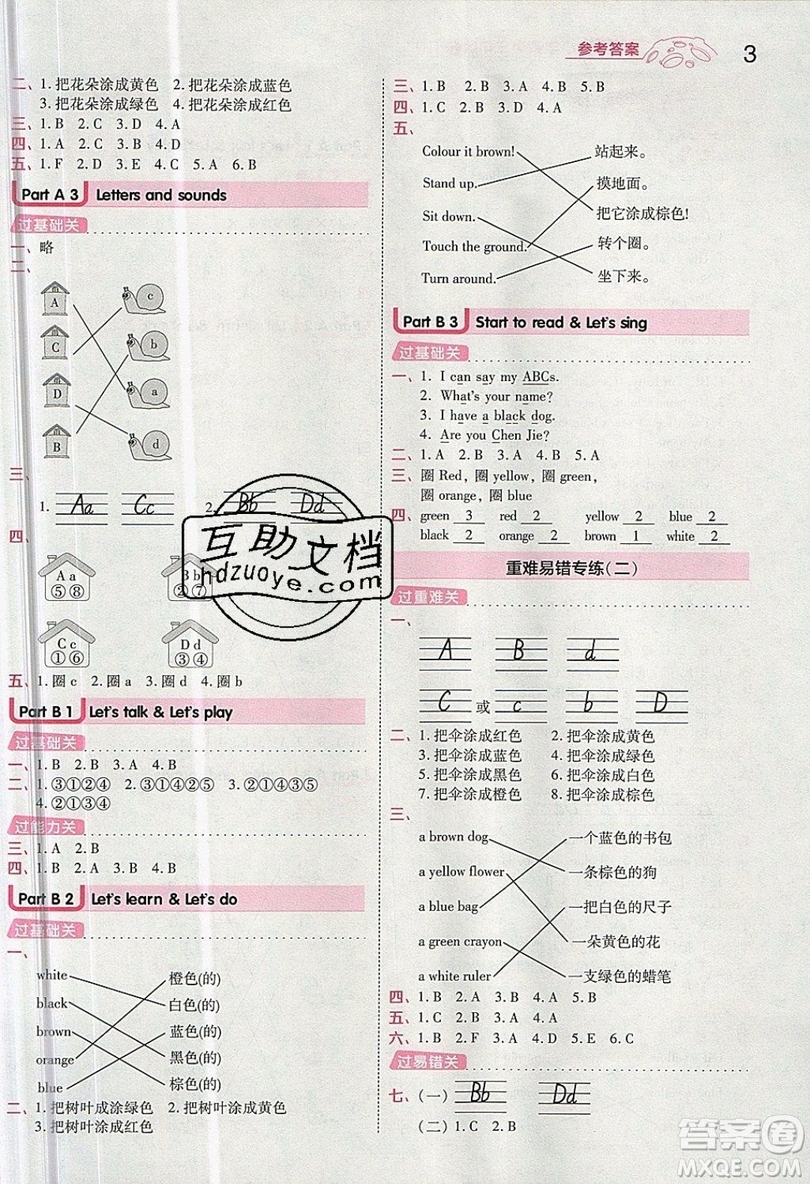 参考答案
3
二、1. 把花朵涂成黄色 2. 把花朵涂成蓝色
3. 把花朵涂成绿色 4. 把花朵涂成红色
三、1. B 2. C 3. D 4. A
四、1. A 2. C 3. A 4. B
五、1. F 2. D 3. E 4. C 5. A 6. B
Part A 3 Letters and sounds
过基础关
一、略
二、
A c
C b
D a
B d
三、
1. Aa Cc 2. Bb Dd
四、
Aa
⑤⑧
Cc Dd
①⑥ ③④
五、1. 圈 c 2. 圈 a 3. 圈 d 4. 圈 b
Part B 1 Let's talk & Let's play
过基础关
一、1. B 2. B 3. A 4. B
二、1. ③①②④ 2. ③①④②⑤ 3. ②④①③⑤
4. ②①③④
过能力关
三、1. A 2. B
四、1. B 2. A 3. A 4. B
Part B 2 Let's learn & Let's do
过基础关
一、
white 橙色(的)
black 白色(的)
brown 蓝色(的)
orange 黑色(的)
blue 棕色(的)
二、1. 把树叶成涂绿色 2. 把树叶涂成黄色
3. 把树叶涂成红色
三、1. B 2. B 3. A 4. A 5. B
四、1. B 2. C 3. B 4. C
五、
Colour it brown! 站起来。
Stand up. 摸地面。
Sit down. 把它涂成棕色!
Touch the ground. 转个圈。
Turn around. 坐下来。
Part B 3 Start to read & Let's sing
过基础关
一、1. I can say my ABCs.
2. What's your name?
3. I have a black dog.
4. Are you Chen Jie?
二、1. A 2. B 3. B 4. A 5. A
三、圈 Red，圈 yellow，圈 green，
圈 orange，圈 blue
四、green 3 red 2 yellow 2 blue 2
black 2 orange 2 brown 1 white 2
重难易错专练(二)
过重难关
一、
A B d
C 或 c b D
二、1. 把伞涂成红色 2. 把伞涂成黄色
3. 把伞涂成蓝色 4. 把伞涂成绿色
5. 把伞涂成黑色 6. 把伞涂成白色
7. 把伞涂成橙色 8. 把伞涂成棕色
三、
a brown dog 一个蓝色的书包
a yellow flower 一条棕色的狗
a blue bag 一把白色的尺子
a green crayon 一朵黄色的花
a white ruler 一支绿色的蜡笔
四、1. B 2. A 3. B 4. A 5. B
五、1. C 2. B 3. A 4. A
六、1. B 2. F 3. A 4. D 5. E 6. C
过易错关
七、(一) Bb Dd
(二) 1. C 2. B
互助文档
hdzuoye.com
答案圈
MXQE.COM